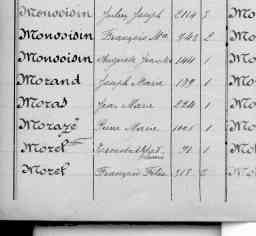 Monsoisin Julien Joseph 2114 2 Mo
Monsoisin François Mie 343 2 Mo
Monsoisin Auguste 144 1 Mo
Morand Joseph Marie 139 1 Mo
Moras Jean Marie 224 1 Mo
Morazé Pierre Marie 1001 1 Mo
Morel 91 1 Mo
Morel François Félix 318 2 Mo